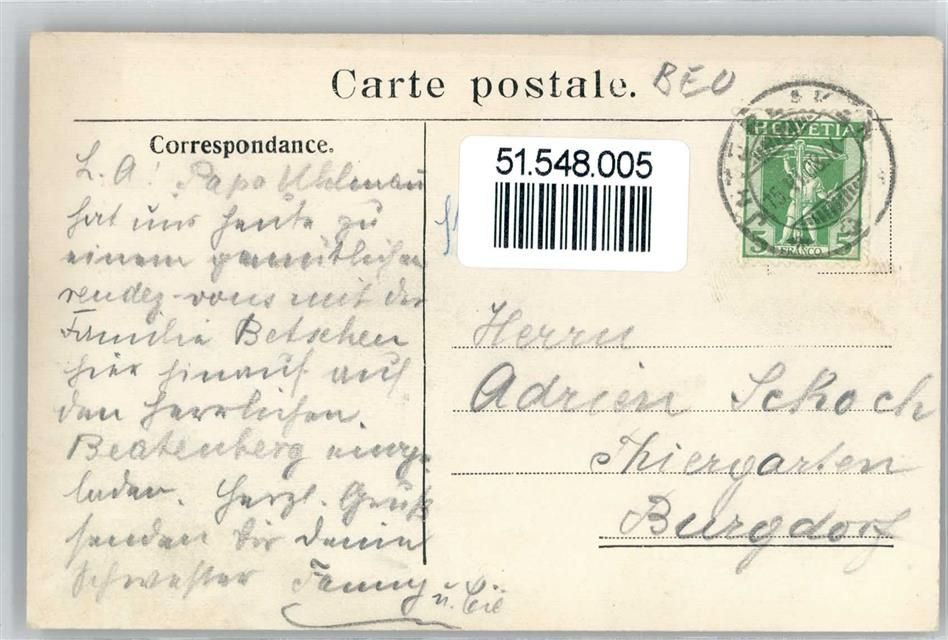 Carte postale. BEO
Correspondance.
51.548.005
HELVETIA
5 5
FRANCO
L. A! Papa Uhlmann
hat uns heute zu
einem gemütlichen
rendez-vous mit der
Familie Betschen
hier hinauf auf
den herrlichen
Beatenberg einge-
laden. Herzl. Gruß
senden Dir Deine
Schwester Fanny
u. Cie
Herrn
Adrien Schoch
Thiergarten
Burgdorf